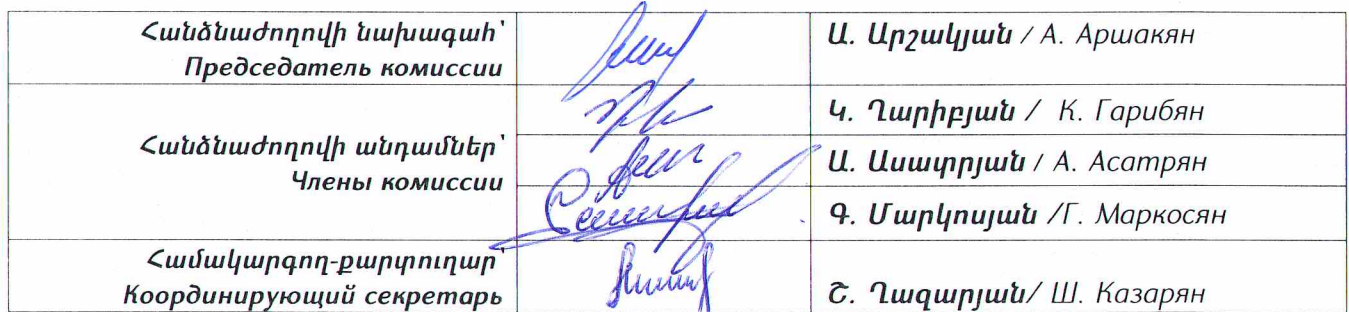 Հանձնաժողովի նախագահ՝
Председатель комиссии
Ա. Արշակյան / А. Аршакян
Հանձնաժողովի անդամներ՝
Члены комиссии
Կ. Ղարիբյան / К. Гарибян
Ա. Ասատրյան / А. Асатрян
Գ. Մարկոսյան /Г. Маркосян
Համակարգող-քարտուղար՝
Координирующий секретарь
Շ. Ղազարյան/ Ш. Казарян